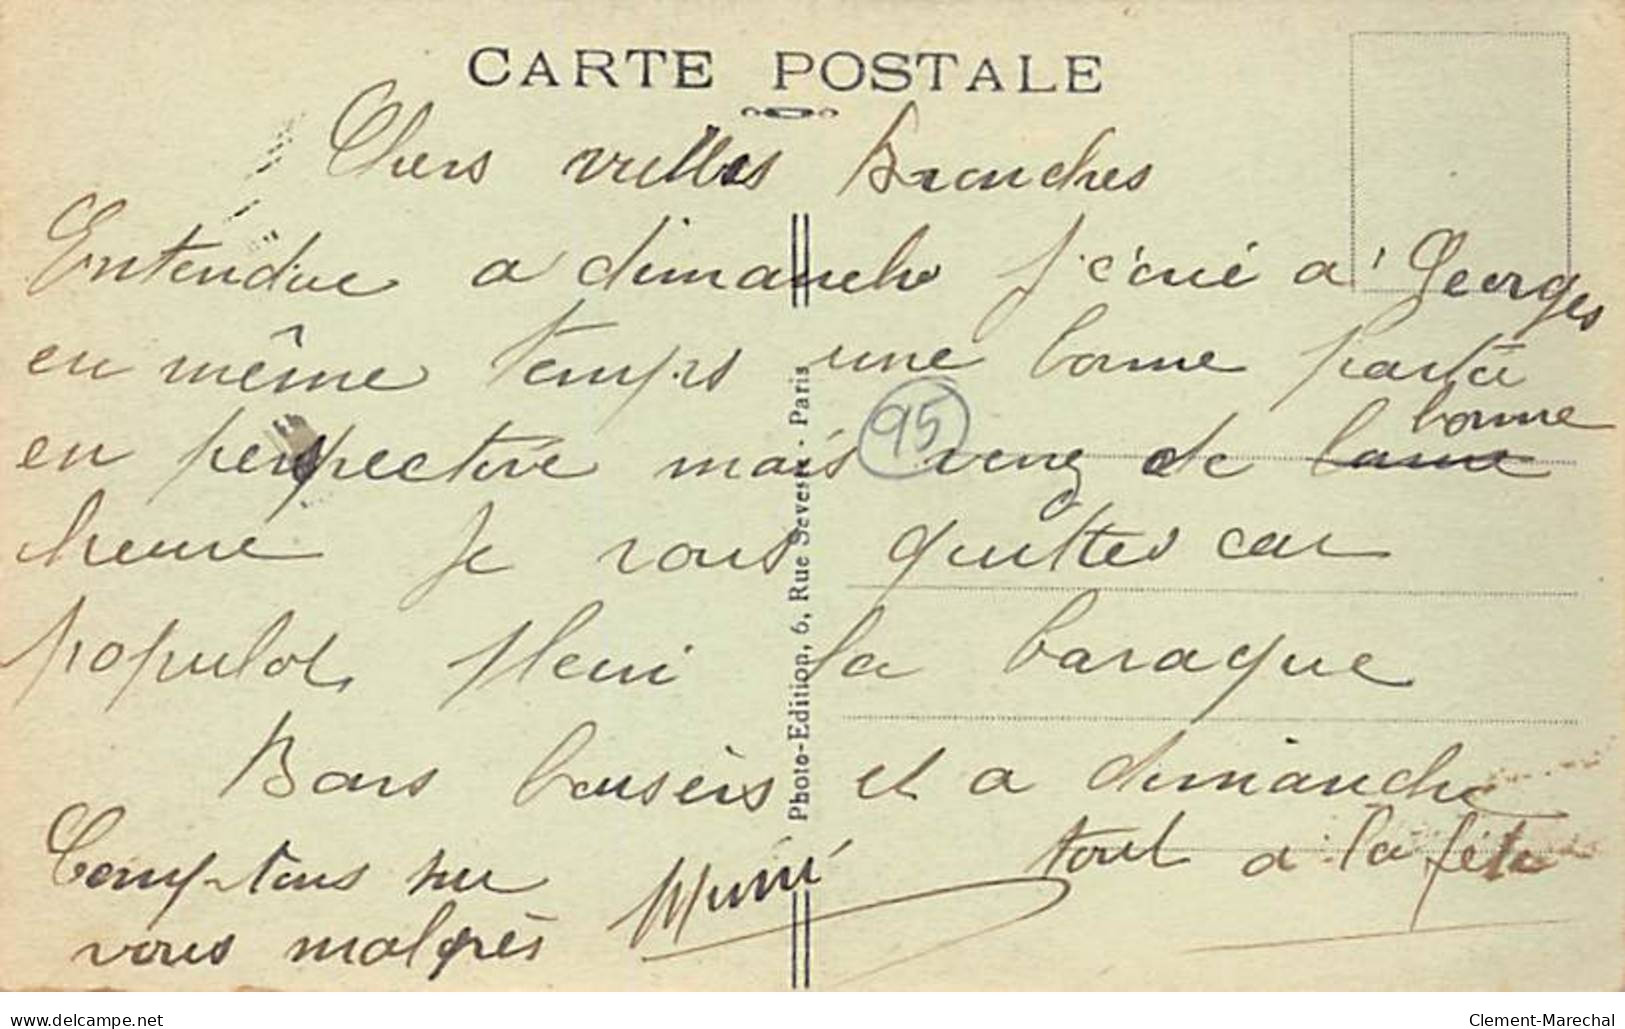 CARTE POSTALE
Chers vielles Branches
Entendue a dimanche j'écrié a Georges
en même temps une bonne partie
95
bonne
en perspective mais venez de
heure Je vous quittes car
populot pleni la baraque
Bons baisers et a dimanche
Comptons sur Mimi tout a la fête
vous malgrès
Photo-Edition, 6, Rue Seveste - Paris
www.delcampe.net
Clement-Marechal